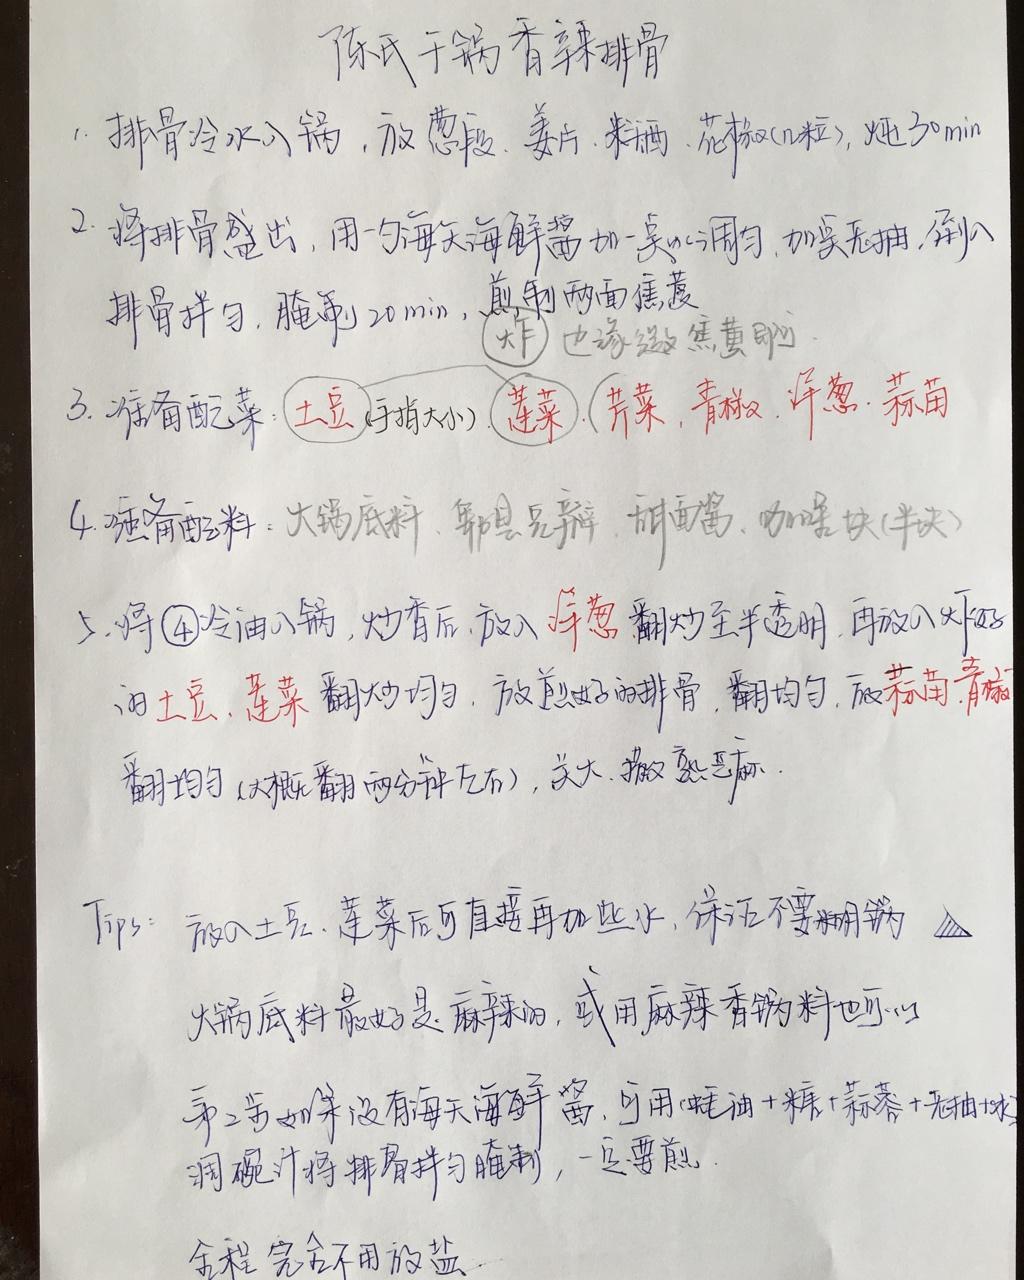 陈氏干锅香辣排骨
1. 排骨冷水入锅，放葱段、姜片、料酒、花椒(n粒)，炖30min
2. 将排骨盛出，用一勺海天海鲜酱加一点水调匀，加点老抽，倒入
排骨拌匀，腌制20min，煎制两面焦黄
炸 也边缘焦黄即可.
3. 准备配菜：土豆(手指大小)、莲菜、(芹菜，青椒、洋葱、蒜苗
4. 准备配料：火锅底料、郫县豆瓣、甜面酱、咖喱块(半块)
5. 将④冷油入锅，炒香后，放入洋葱翻炒至半透明，再放入炸好
的土豆、莲菜翻炒均匀，放煎好的排骨，翻均匀，放蒜苗、青椒
翻均匀(大概翻两分钟左右)，关火、撒熟芝麻.
Tips: 放入土豆、莲菜后可直接再加些水，保证不要糊锅
火锅底料最好是麻辣的，或用麻辣香锅料也可以
第二步如果没有海天海鲜酱，可用(蚝油+糖+蒜蓉+老抽+水)
调碗汁将排骨拌匀腌制，一定要煎.
全程完全不用放盐